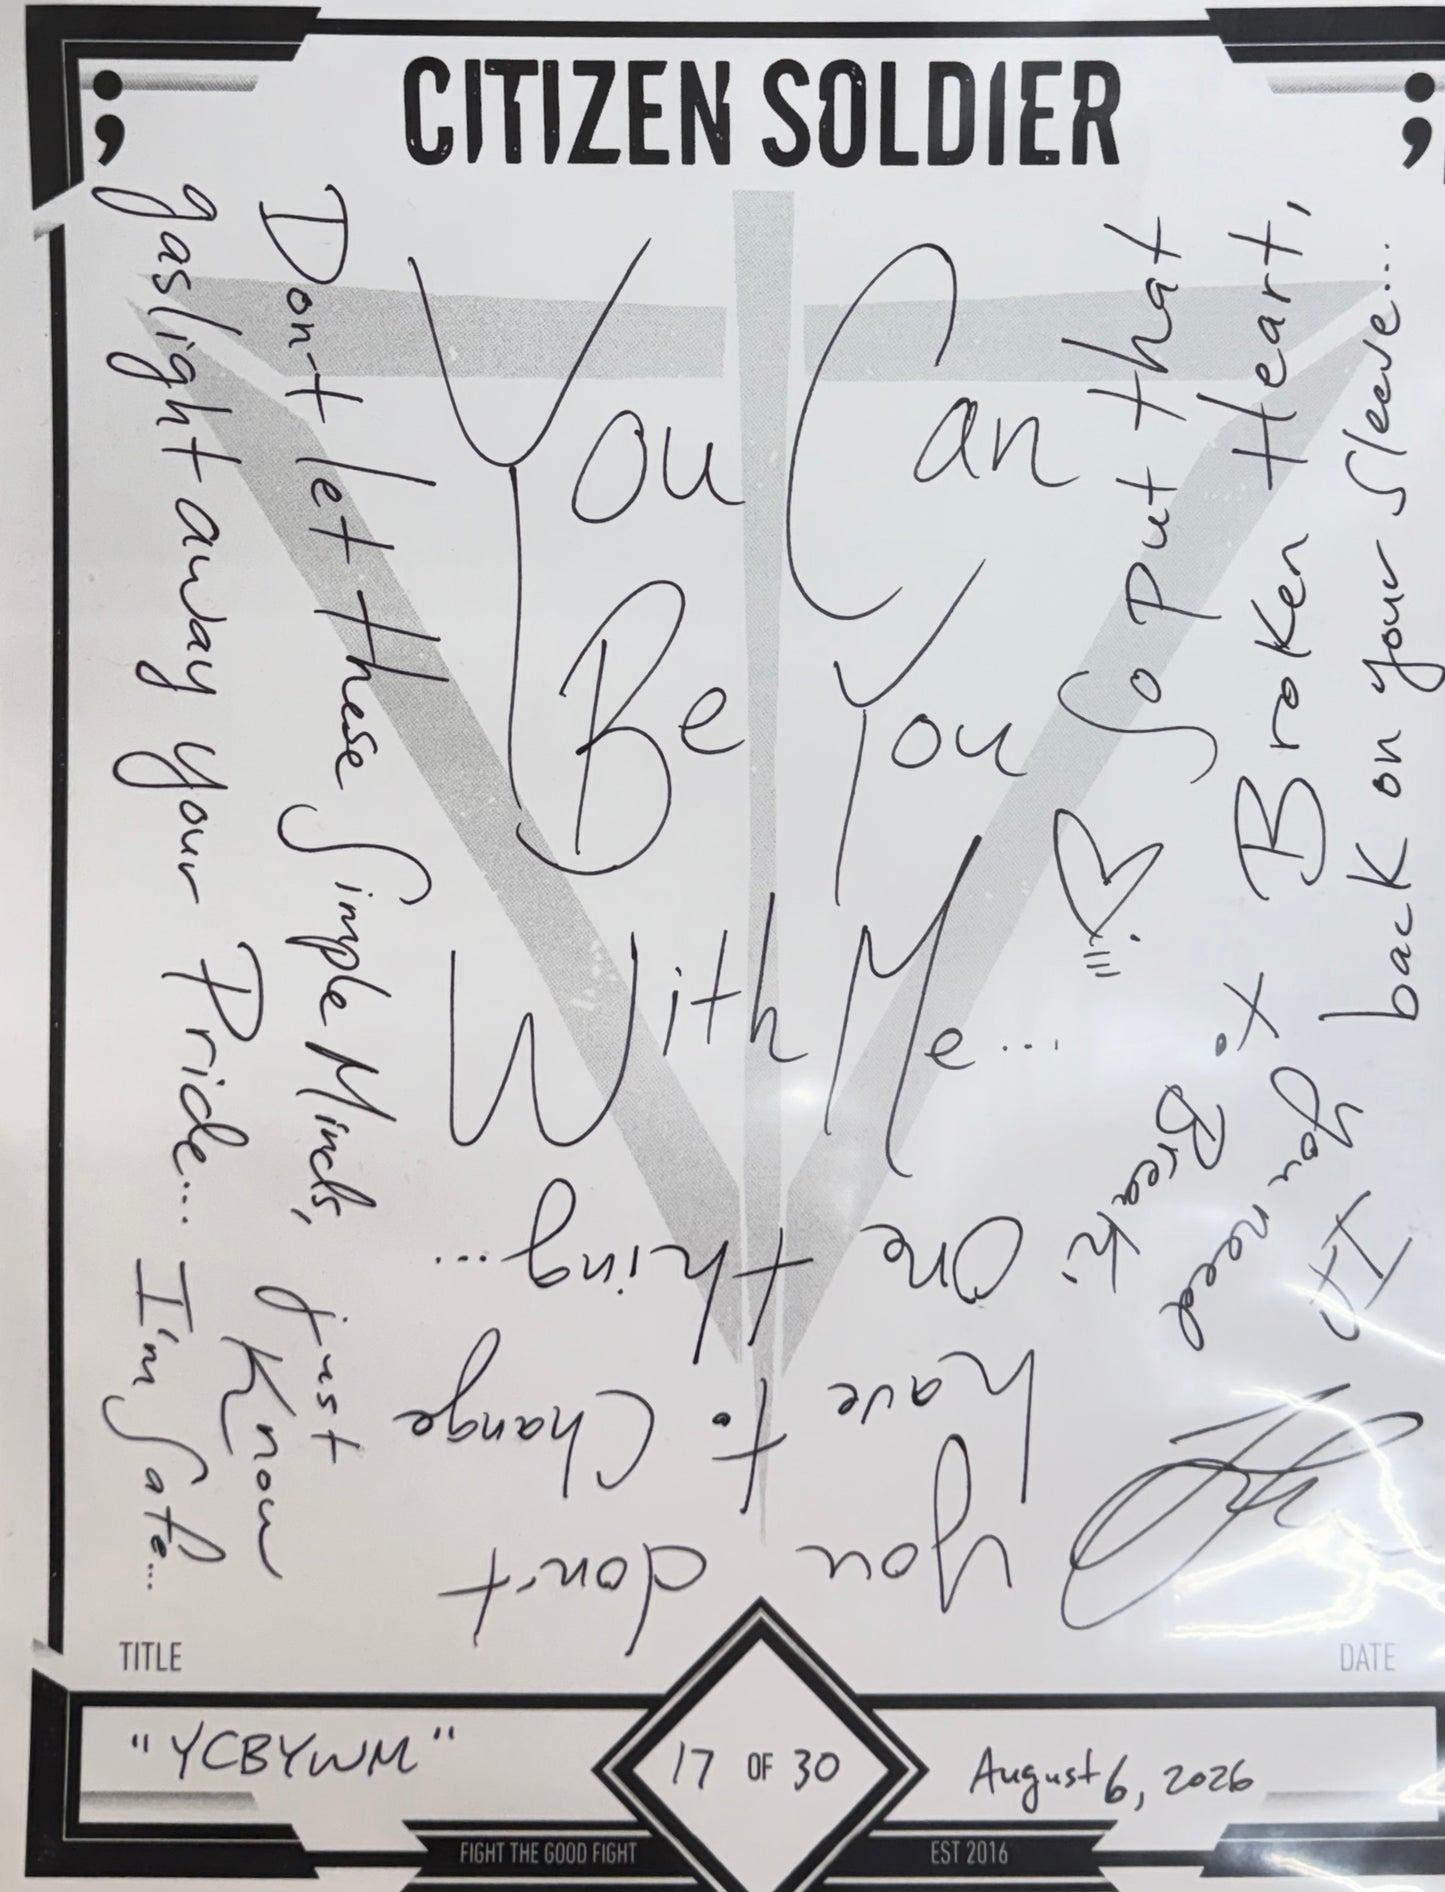 CITIZEN SOLDIER
You Can
Be You
With Me...
So Put that
Broken Heart,
back on your Sleeve...
If
you need
x
Break,
you don't
have to Change
one thing...
Don't let these Simple Minds,
gaslight away your Pride...
just
Know
I'm Safe...
TITLE
DATE
"YCBYWM"
17 OF 30
August 6, 2026
FIGHT THE GOOD FIGHT
EST 2016